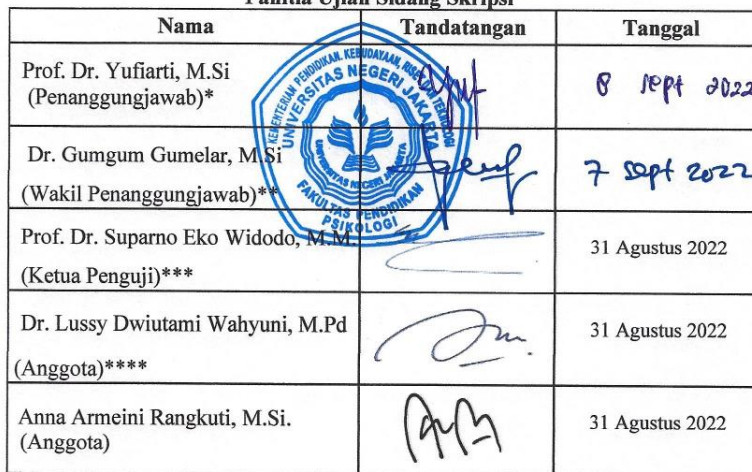 Panitia Ujian Sidang Skripsi
Nama Tandatangan Tanggal
Prof. Dr. Yufiarti, M.Si
(Penanggungjawab)*
8 sept 2022
Dr. Gumgum Gumelar, M.Si
(Wakil Penanggungjawab)**
7 sept 2022
Prof. Dr. Suparno Eko Widodo, M.M.
(Ketua Penguji)***
31 Agustus 2022
Dr. Lussy Dwiutami Wahyuni, M.Pd
(Anggota)****
31 Agustus 2022
Anna Armeini Rangkuti, M.Si.
(Anggota)
31 Agustus 2022
KEMENTERIAN PENDIDIKAN, KEBUDAYAAN, RISET, DAN TEKNOLOGI
UNIVERSITAS NEGERI JAKARTA
UNIVERSITAS NEGERI JAKARTA
FAKULTAS PENDIDIKAN
PSIKOLOGI